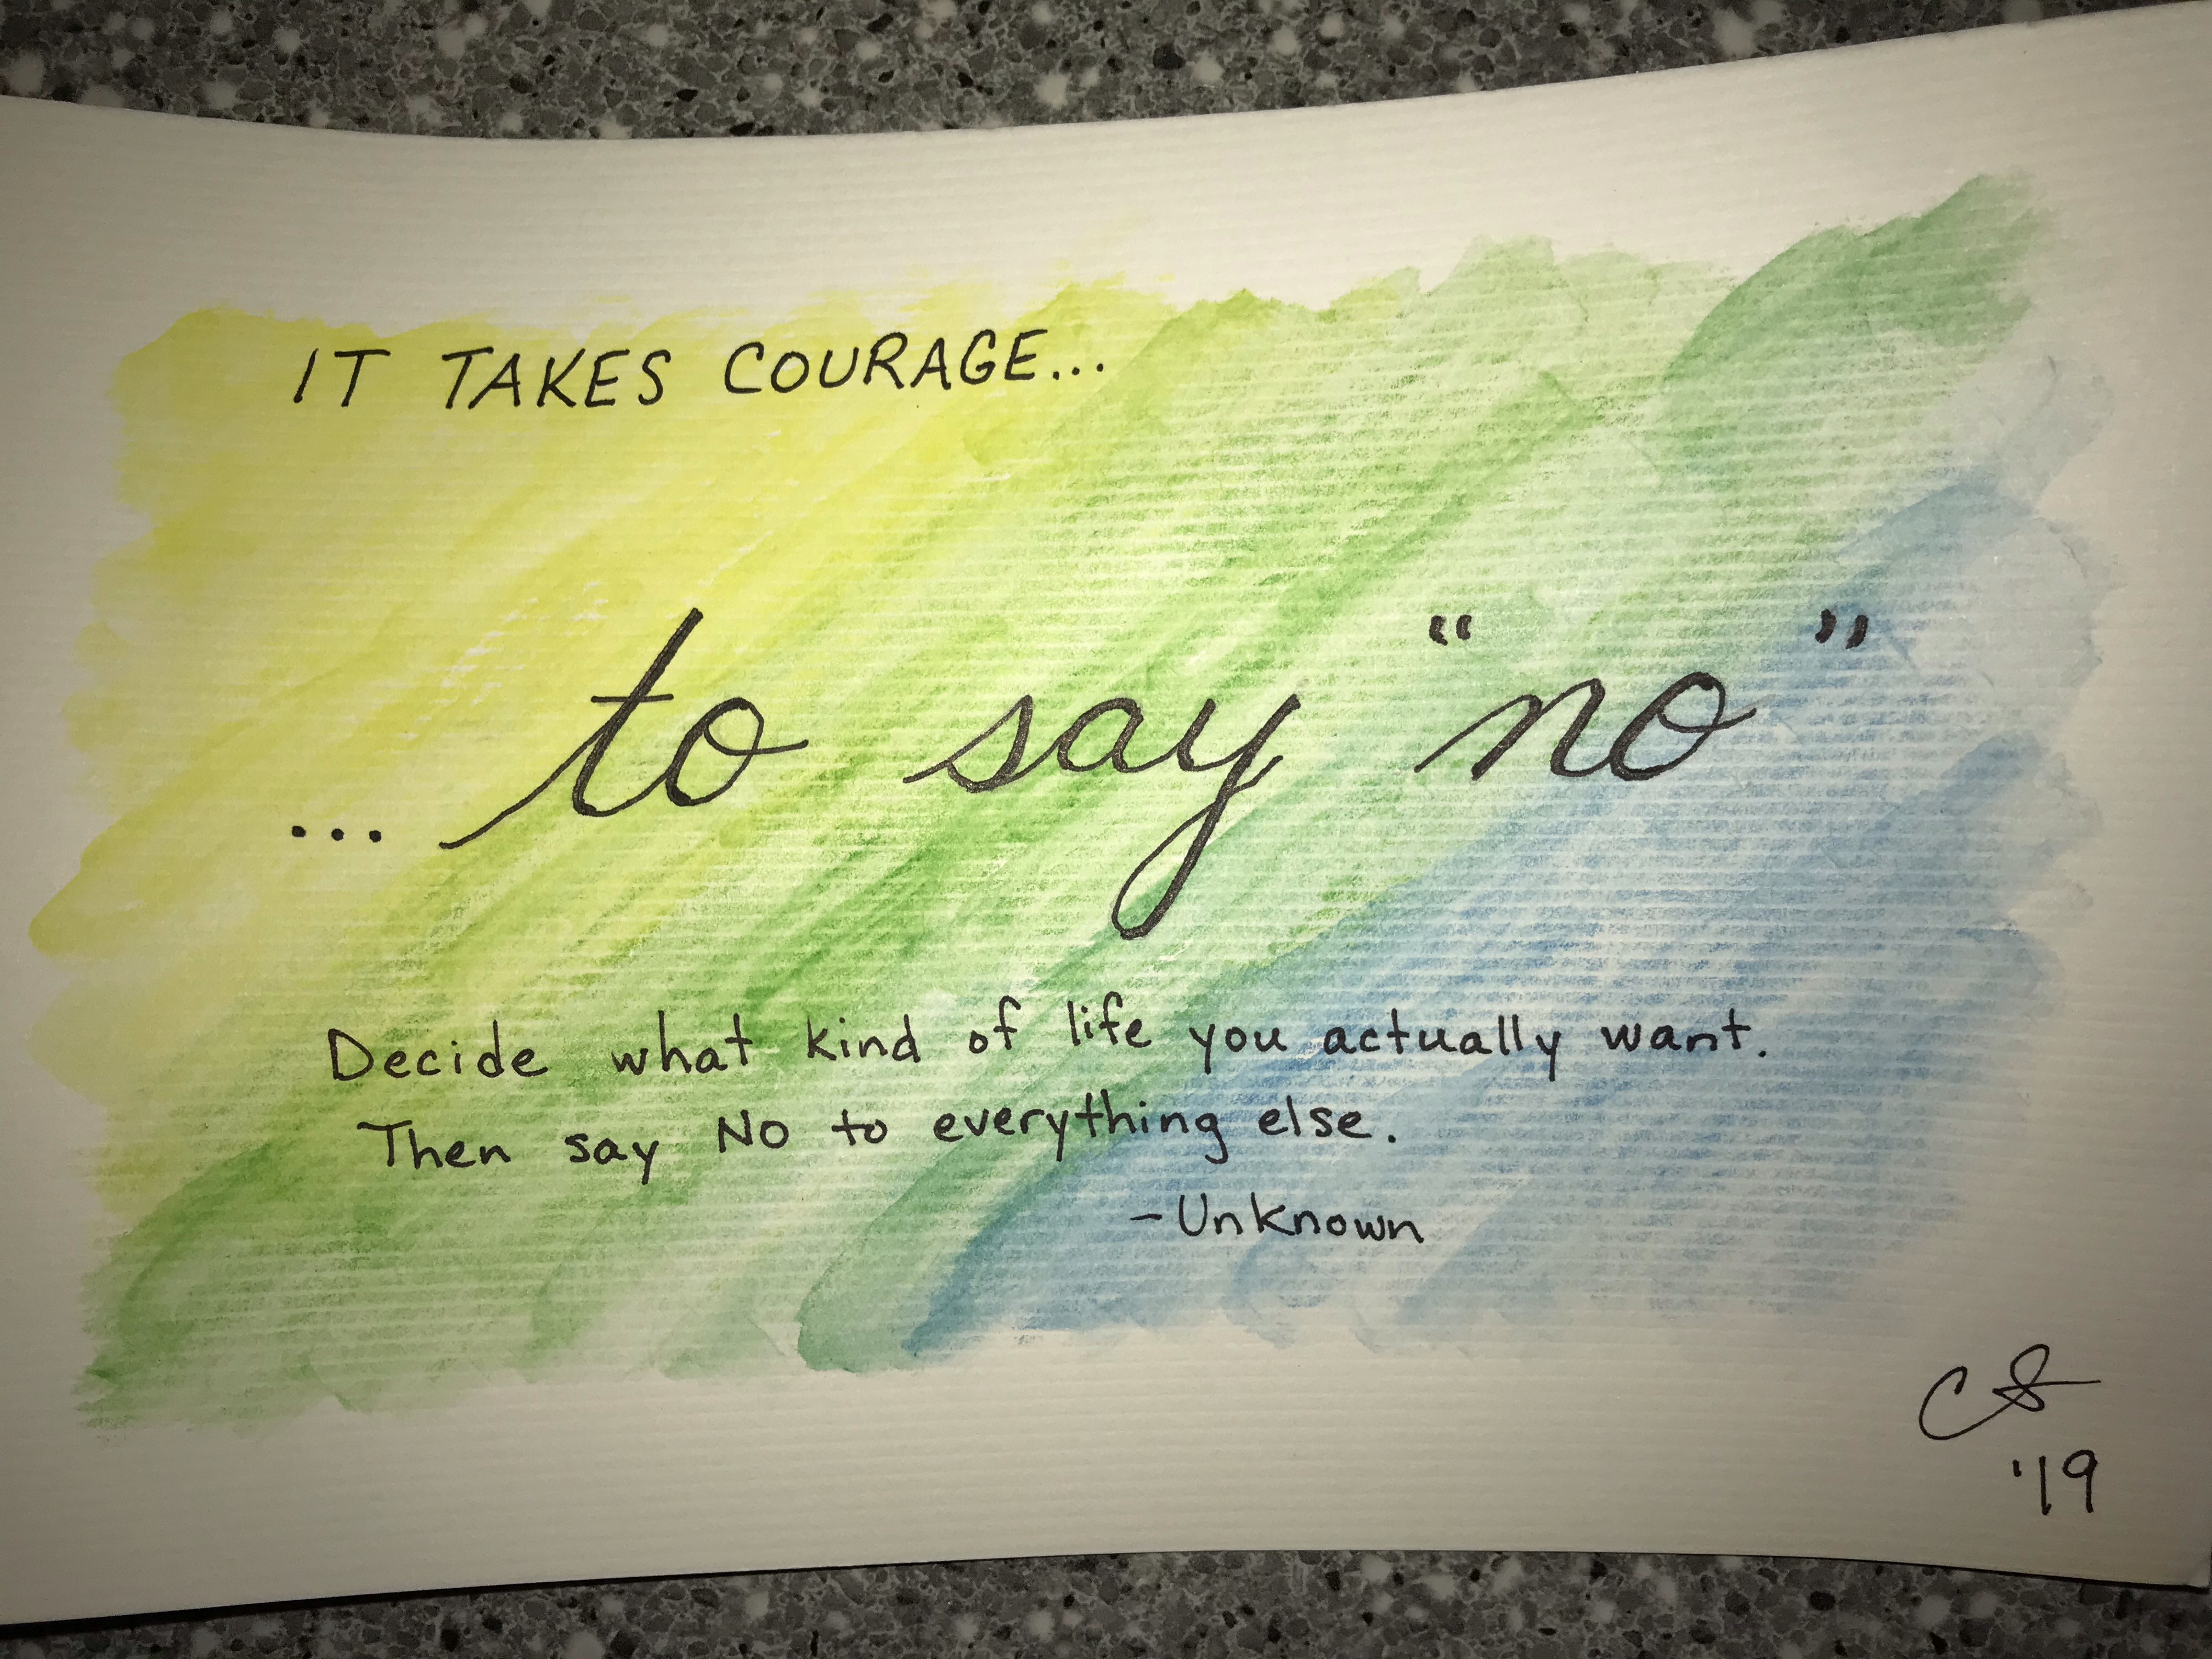 IT TAKES COURAGE...
... to say "no"
Decide what kind of life you actually want.
Then say NO to everything else.
-Unknown
CS
'19